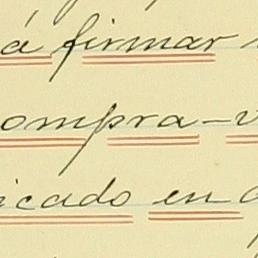 á firmar
ompra-v
icado en